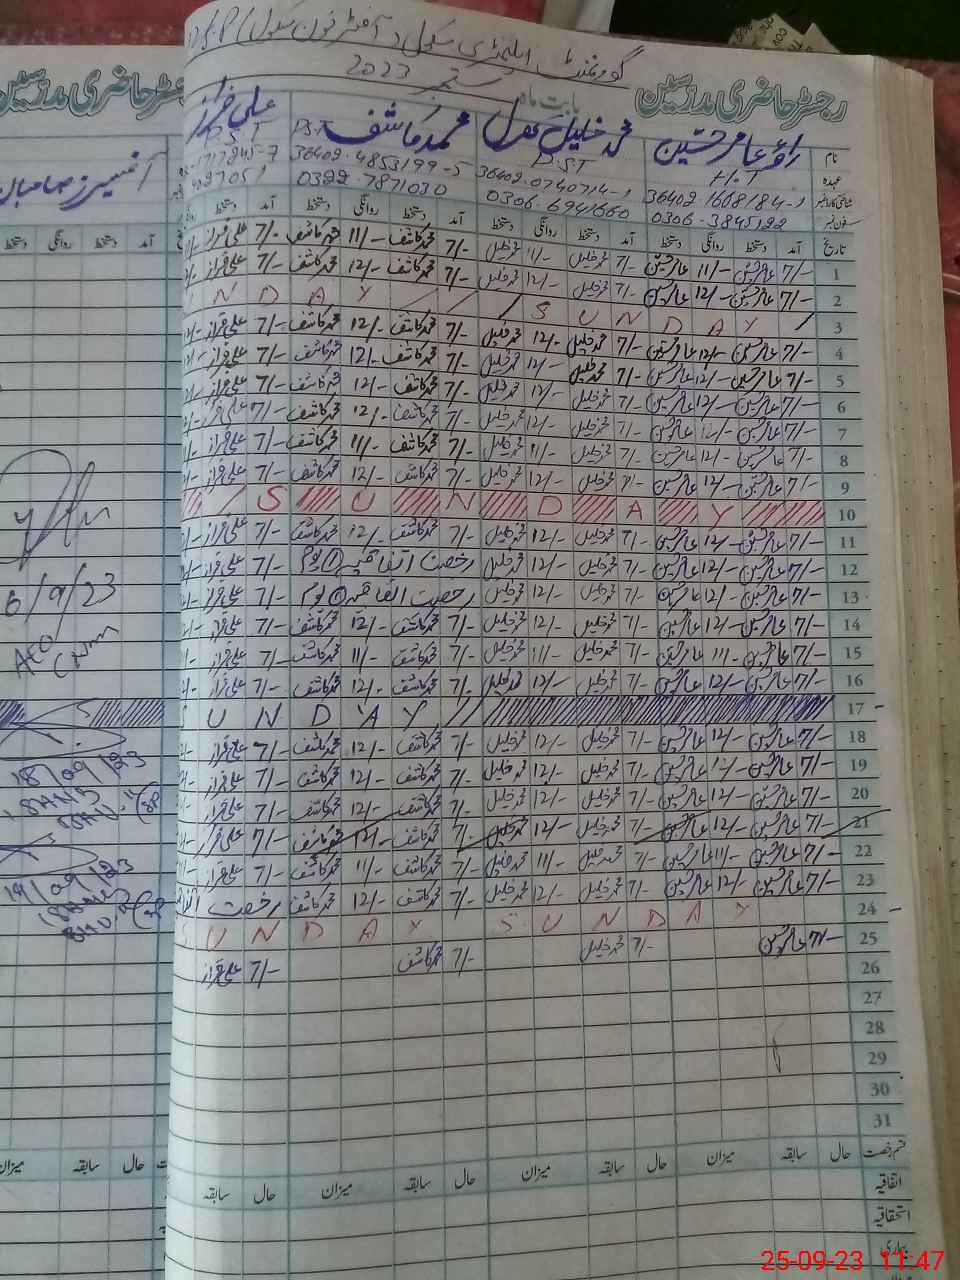 گورنمنٹ ایلیمنٹری سکول
رجسٹر حاضری مدرسین
بابت ماہ ستمبر 2023
نام راؤ عامر حسین محمد خلیل محمد کاشف علی فراز
عہدہ H.T P.S.T P.S.T P.S.T
36402-1668184-1 36402-0740714-1 36402-4853199-5
فون نمبر 0306-3845122 0306-6941660 0322-7871030
تاریخ آمد دستخط روانگی دستخط آمد دستخط روانگی دستخط آمد دستخط روانگی دستخط آمد دستخط
1 7/- عامر حسین 11/- عامر حسین 7/- محمد خلیل 11/- محمد خلیل 7/- محمد کاشف 11/- محمد کاشف 7/- علی فراز
2 7/- عامر حسین 12/- عامر حسین 7/- محمد خلیل 12/- محمد خلیل 7/- محمد کاشف 12/- محمد کاشف 7/- علی فراز
3 SUNDAY NDAY
4 7/- عامر حسین 12/- عامر حسین 7/- محمد خلیل 12/- محمد خلیل 7/- محمد کاشف 12/- محمد کاشف 7/- علی فراز
5 7/- عامر حسین 12/- عامر حسین 7/- محمد خلیل 12/- محمد خلیل 7/- محمد کاشف 12/- محمد کاشف 7/- علی فراز
6 7/- عامر حسین 12/- عامر حسین 7/- محمد خلیل 12/- محمد خلیل 7/- محمد کاشف 12/- محمد کاشف 7/- علی فراز
7 7/- عامر حسین 12/- عامر حسین 7/- محمد خلیل 12/- محمد خلیل 7/- محمد کاشف 12/- محمد کاشف 7/- علی فراز
8 7/- عامر حسین 12/- عامر حسین 7/- محمد خلیل 11/- محمد خلیل 7/- محمد کاشف 11/- محمد کاشف 7/- علی فراز
9 7/- عامر حسین 12/- عامر حسین 7/- محمد خلیل 12/- محمد خلیل 7/- محمد کاشف 12/- محمد کاشف 7/- علی فراز
10 SUNDAY
11 7/- عامر حسین 12/- عامر حسین 7/- محمد خلیل 12/- محمد خلیل 7/- محمد کاشف 12/- محمد کاشف 7/- علی فراز
12 7/- عامر حسین 12/- عامر حسین 7/- محمد خلیل 12/- محمد خلیل رخصت اتفاقیہ یوم 7/- علی فراز
13 7/- عامر حسین 12/- عامر حسین 7/- محمد خلیل 12/- محمد خلیل رخصت اتفاقیہ یوم 7/- علی فراز
14 7/- عامر حسین 12/- عامر حسین 7/- محمد خلیل 12/- محمد خلیل 7/- محمد کاشف 12/- محمد کاشف 7/- علی فراز
15 7/- عامر حسین 11/- عامر حسین 7/- محمد خلیل 11/- محمد خلیل 7/- محمد کاشف 11/- محمد کاشف 7/- علی فراز
16 7/- عامر حسین 12/- عامر حسین 7/- محمد خلیل 12/- محمد خلیل 7/- محمد کاشف 12/- محمد کاشف 7/- علی فراز
17 SUNDAY
18 7/- عامر حسین 12/- عامر حسین 7/- محمد خلیل 12/- محمد خلیل 7/- محمد کاشف 12/- محمد کاشف 7/- علی فراز
19 7/- عامر حسین 12/- عامر حسین 7/- محمد خلیل 12/- محمد خلیل 7/- محمد کاشف 12/- محمد کاشف 7/- علی فراز
20 7/- عامر حسین 12/- عامر حسین 7/- محمد خلیل 12/- محمد خلیل 7/- محمد کاشف 12/- محمد کاشف 7/- علی فراز
21 7/- عامر حسین 12/- عامر حسین 7/- محمد خلیل 12/- محمد خلیل 7/- محمد کاشف 12/- محمد کاشف 7/- علی فراز
22 7/- عامر حسین 11/- عامر حسین 7/- محمد خلیل 11/- محمد خلیل 7/- محمد کاشف 11/- محمد کاشف 7/- علی فراز
23 7/- عامر حسین 12/- عامر حسین 7/- محمد خلیل 12/- محمد خلیل 7/- محمد کاشف 12/- محمد کاشف رخصت
24 SUNDAY SUNDAY
25 7/- عامر حسین 7/- محمد خلیل 7/- محمد کاشف 7/- علی فراز
26
27
28
29
30
31
قسم رخصت حال سابقہ میزان حال سابقہ میزان حال سابقہ میزان حال سابقہ
اتفاقیہ
استحقاقیہ
بیماری
رجسٹر حاضری مدرسین
آفیسرز صاحبان
آمد دستخط روانگی دستخط
6/9/23
AEO
18/09/23
19/09/23
حال سابقہ میزان
25-09-23 11:47